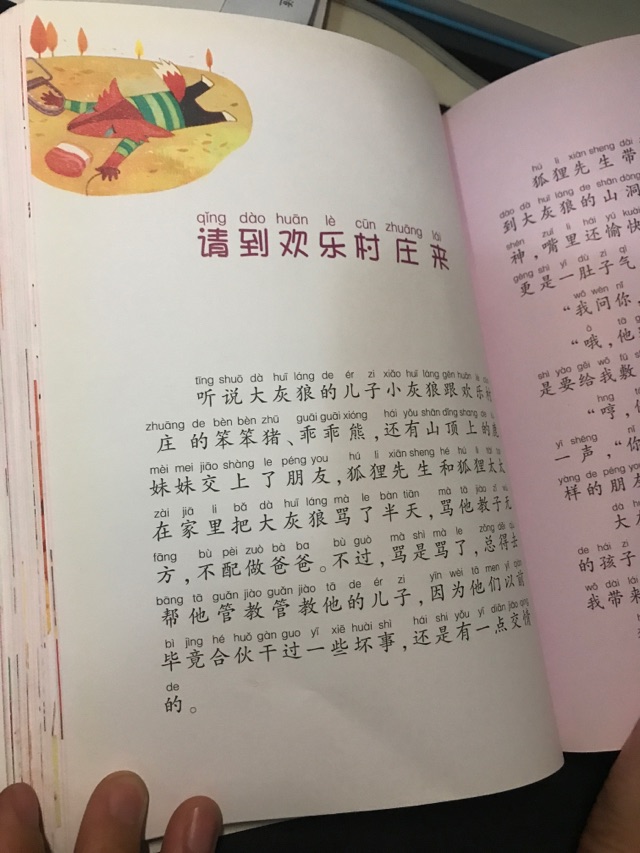 qǐng dào huān lè cūn zhuāng lái
请到欢乐村庄来
tīng shuō dà huī láng de ér zi xiǎo huī láng gēn huān lè
听说大灰狼的儿子小灰狼跟欢乐村
zhuāng de bèn bèn zhū guāi guāi xióng hái yǒu shān dǐng shang de
庄的笨笨猪、乖乖熊,还有山顶上的鹿
mèi mei jiāo shàng le péng you hú li xiān sheng hé hú li tài
妹妹交上了朋友,狐狸先生和狐狸太太
zài jiā li bǎ dà huī láng mà le bàn tiān mà tā jiào zǐ
在家里把大灰狼骂了半天,骂他教子无
fāng bù pèi zuò bà ba bú guò mà shì mà le zǒng děi
方,不配做爸爸。不过,骂是骂了,总得去
bāng tā guǎn jiào guǎn jiào tā de ér zi yīn wèi tā men yǐ qián
帮他管教管教他的儿子,因为他们以前
bì jìng hé huǒ gàn guo yì xiē huài shì hái shi yǒu yì diǎn jiāo qing
毕竟合伙干过一些坏事,还是有一点交情
de
的。
hú li xiān sheng dài
狐狸先生带
dào dà huī láng de shān dòng
到大灰狼的山洞
shén zuǐ li hái yú kuài
神,嘴里还愉快
gèng shì yí dù zi qì
更是一肚子气
wǒ wèn nǐ
“我问你,
ò tā
“哦,他
shì yào gěi wǒ fū
是要给我敷
hng tā
“哼,你
yì shēng nǐ
一声,“你
yàng de péng you
样的朋友
dà
大
de hái zi
的孩子
wǒ dài lái
我带来